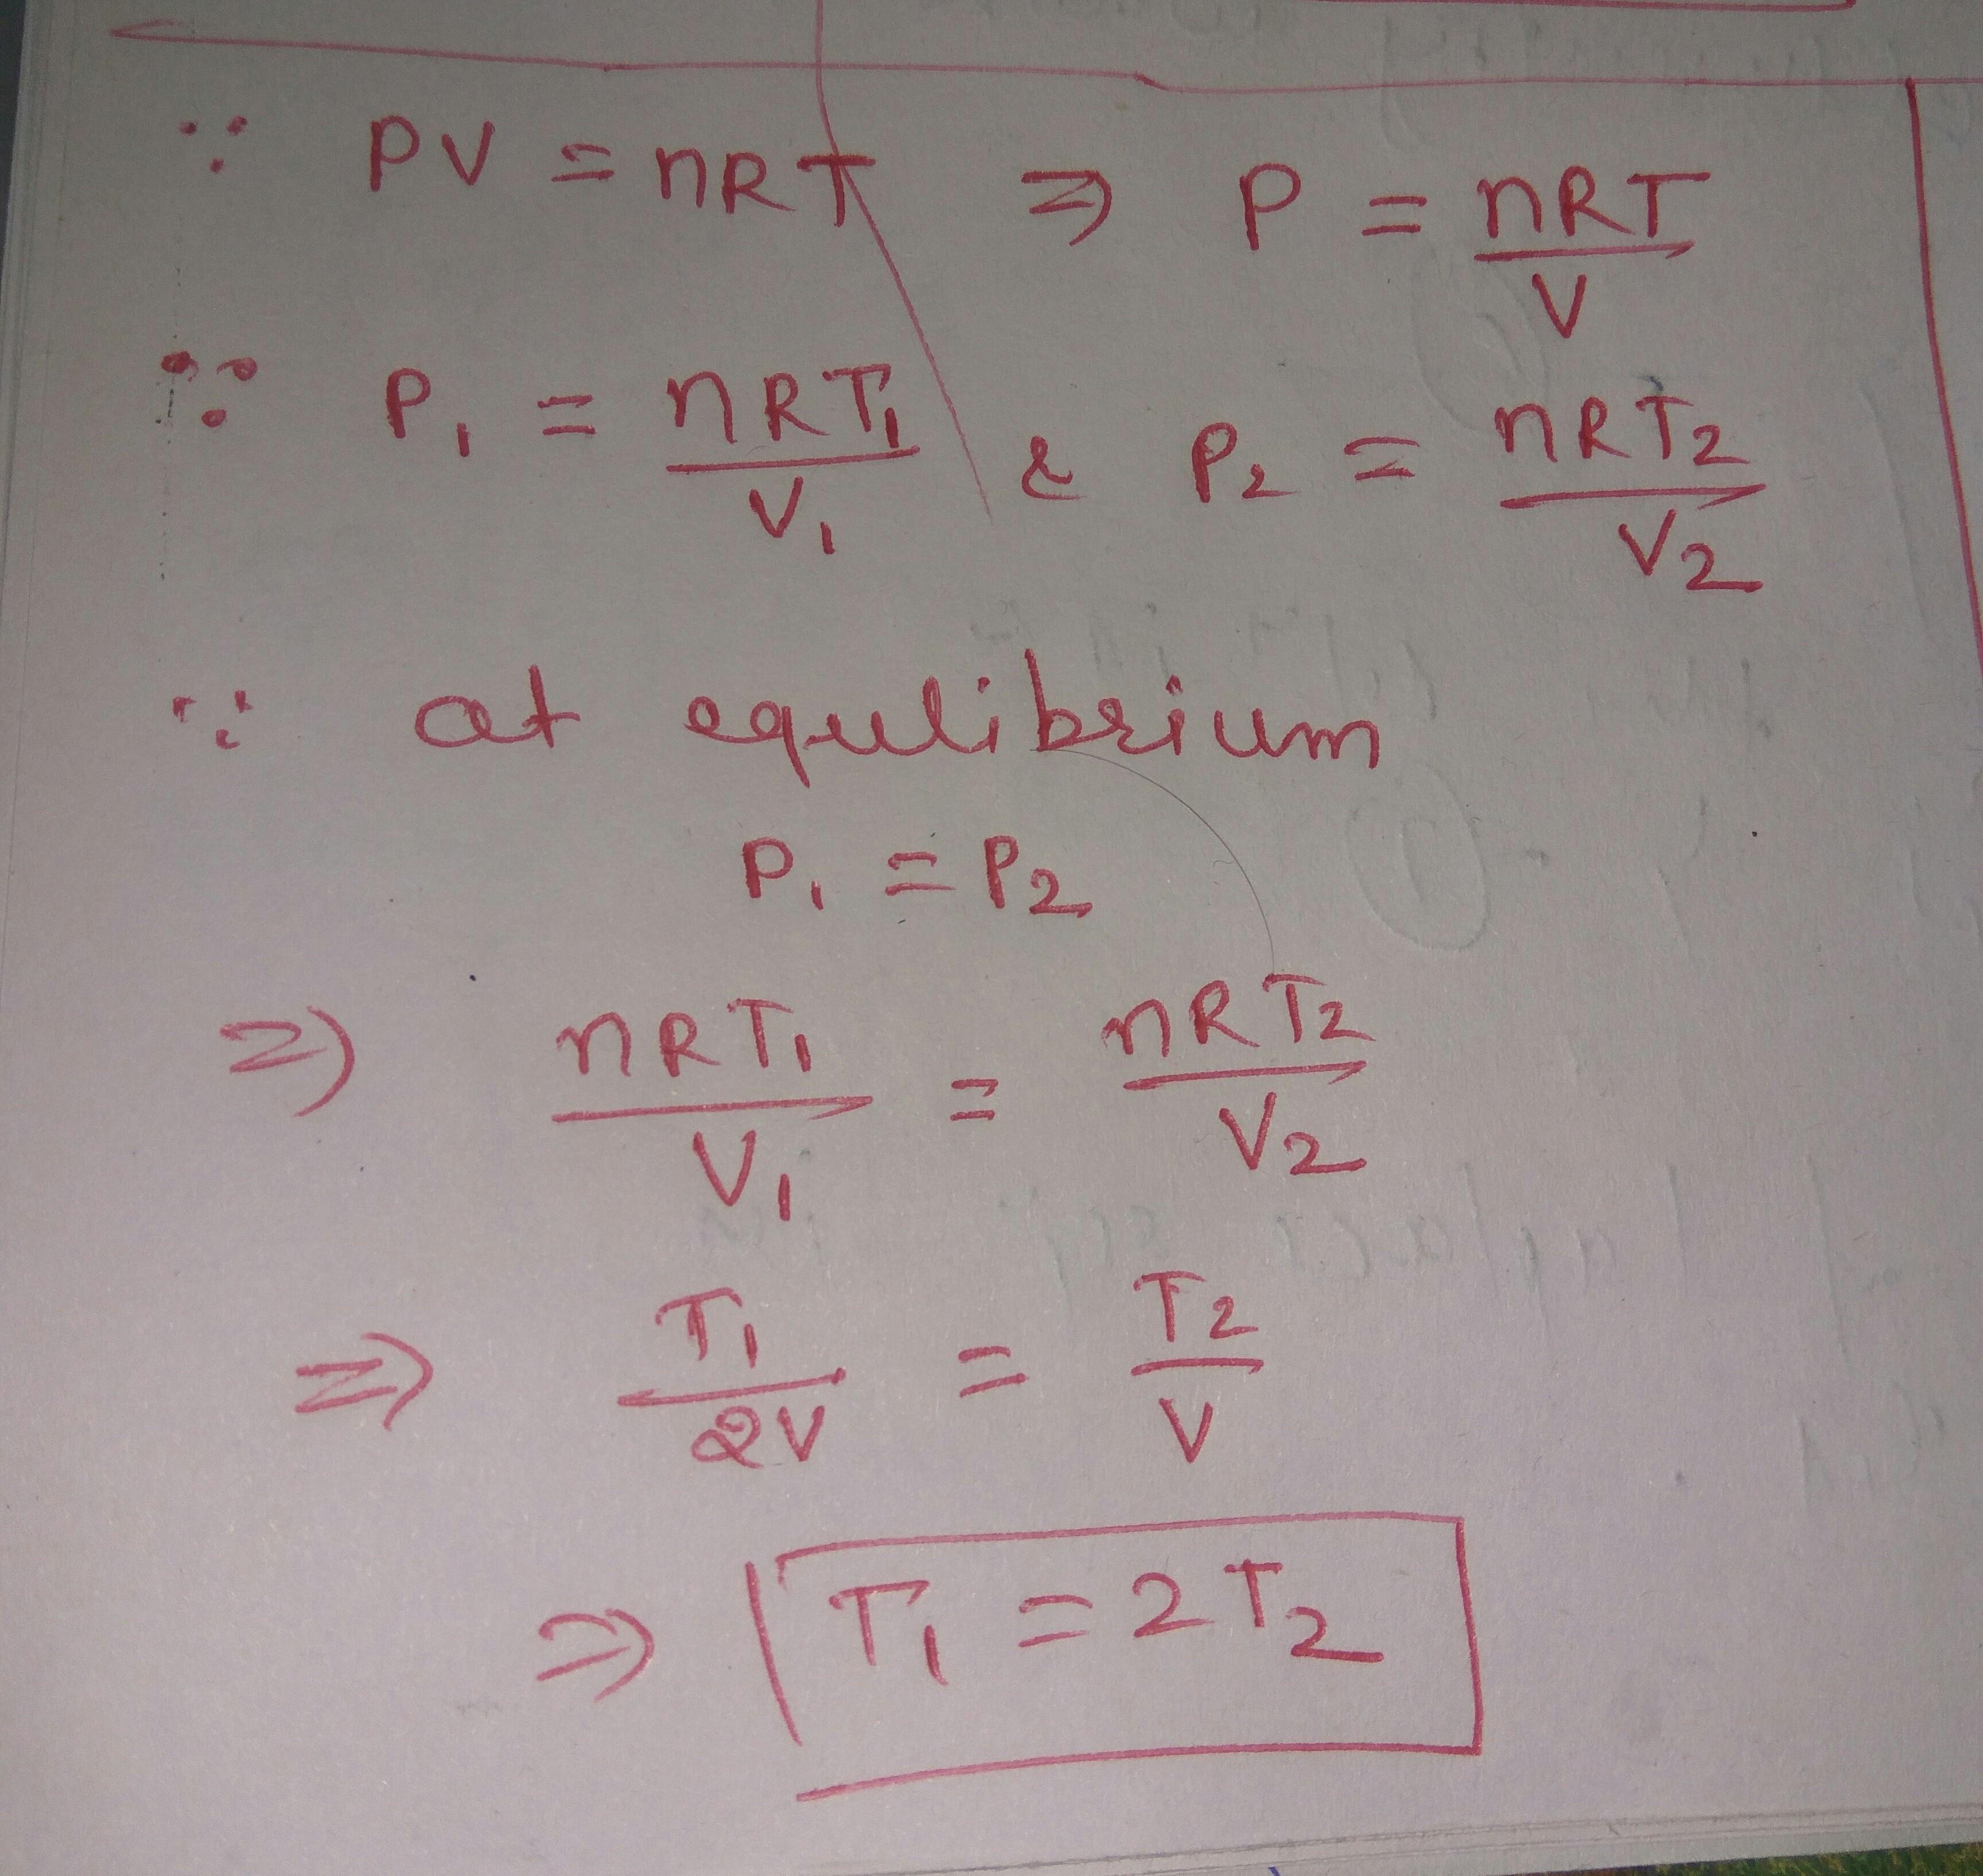 ∵ PV = nRT ⇒ P = nRT/V
∵ P₁ = nRT₁/V₁ & P₂ = nRT₂/V₂
∵ at equlibrium
P₁ = P₂
⇒ nRT₁/V₁ = nRT₂/V₂
⇒ T₁/2V = T₂/V
⇒ T₁ = 2T₂